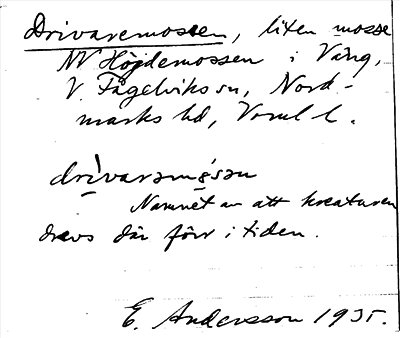 Drivaremossen, liten mosse
NV Höjdemossen i Väng,
V. Fågelviks sn, Nord-
marks hd, Vrml l.
drivaramåsan
Namnet av att kreaturen
drevs där förr i tiden.
E. Andersson 1935.